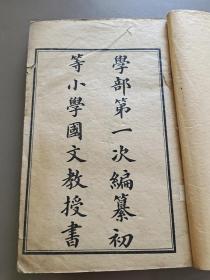 學部第一次編纂初
等小學國文教授書